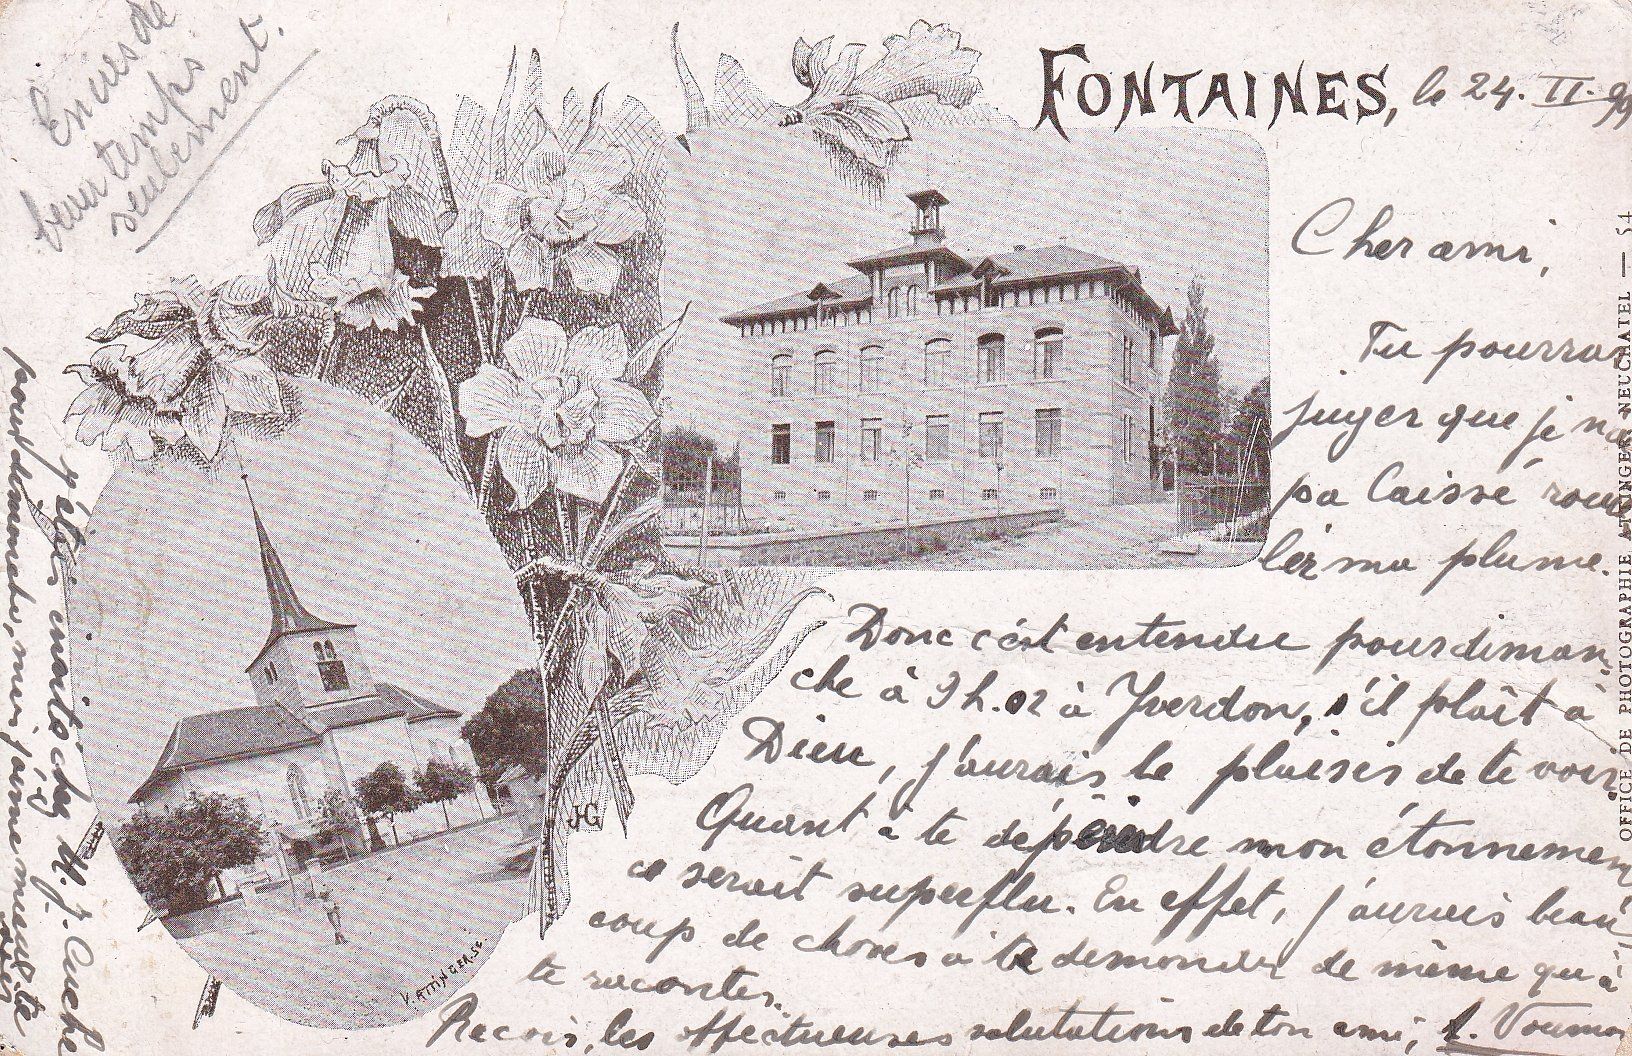 En cas de
beau temps
seulement.
FONTAINES, le 24. II. 99
Cher ami,
Tu pourras
juger que je n'ai
pa laissé rou
ler ma plume.
Donc c'est entendu pour diman
che à 9 h. 02 à Yverdon, s'il plaît à
Dieu, j'aurais le plaisir de te voir.
Quant à te dépeindre mon étonnement
ce serait superflu. En effet, j'aurais beau
coup de choses à te demander de même qu'à
te raconter.
Reçois, les affectueuses salutations de ton ami, A. Vouma
J'étais invité chez M. J. Cuche
pour dimanche, mais j'aime mieux te
OFFICE DE PHOTOGRAPHIE ATTINGER NEUCHATEL — 54
JG
V. ATTINGER. SC